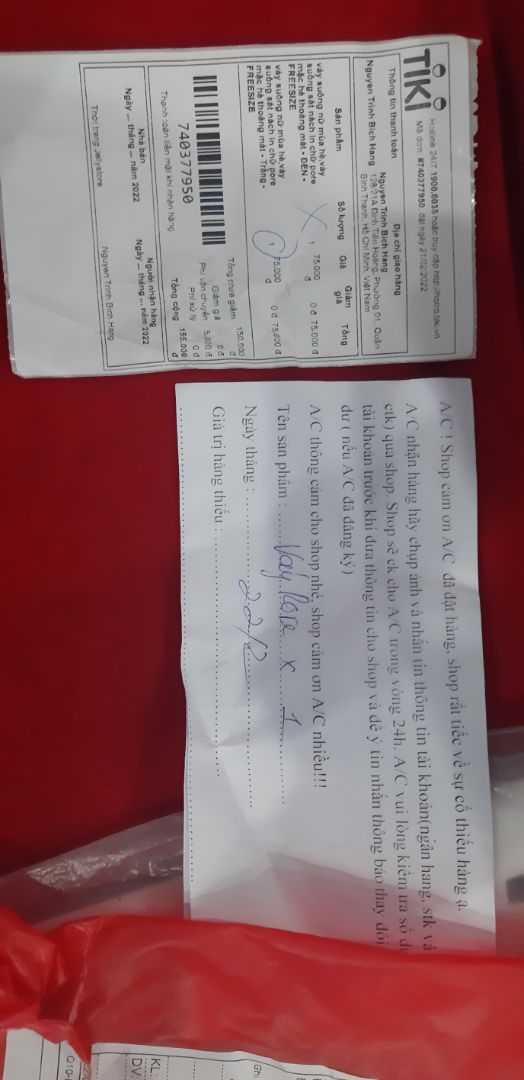 TIKI
Hotline 24/7 1900.6035 hoặc truy cập http://hotro.tiki.vn
Mã đơn: #740377950, đặt ngày 21/02/2022
Thông tin thanh toán
Địa chỉ giao hàng
Nguyen Trinh Bich Hang
Nguyen Trinh Bich Hang
128/21A Đinh Tiên Hoàng, Phường 01, Quận
Bình Thạnh, Hồ Chí Minh, Việt Nam
Sản phẩm Số lượng Giá Giảm giá Tổng
váy suông nữ mùa hè,váy
suông sát nách in chữ pore
mặc hè thoáng mát - ĐEN -
FREESIZE
1 75.000 đ 0 đ 75.000 đ
váy suông nữ mùa hè,váy
suông sát nách in chữ pore
mặc hè thoáng mát - Trắng -
FREESIZE
1 75.000 đ 0 đ 75.000 đ
740377950
Tổng chưa giảm 150.000 đ
Giảm giá 0 đ
Phí vận chuyển 5.000 đ
Phí xử lý 0 đ
Tổng cộng 155.000 đ
Thanh toán tiền mặt khi nhận hàng
Nhà bán
Ngày ... tháng ... năm 2022
Người nhận hàng
Ngày ... tháng ... năm 2022
Thời trang Jely store
Nguyen Trinh Bich Hang
A/C ! Shop cảm ơn A/C đã đặt hàng, shop rất tiếc về sự cố thiếu hàng ạ.
A/C nhận hàng hãy chụp ảnh và nhắn tin thông tin tài khoản(ngân hang, stk và
ctk) qua shop. Shop sẽ ck cho A/C trong vòng 24h. A/C vui lòng kiểm tra số dư
tài khoản trước khi đưa thông tin cho shop và để ý tin nhắn thông báo thay đổi
dư ( nếu A/C đã đăng ký)
A/C thông cảm cho shop nhé, shop cảm ơn A/C nhiều!!!
Tên sản phẩm : Váy x 1
Ngày tháng : 22/2
Giá trị hàng thiếu :
KL:
DV: